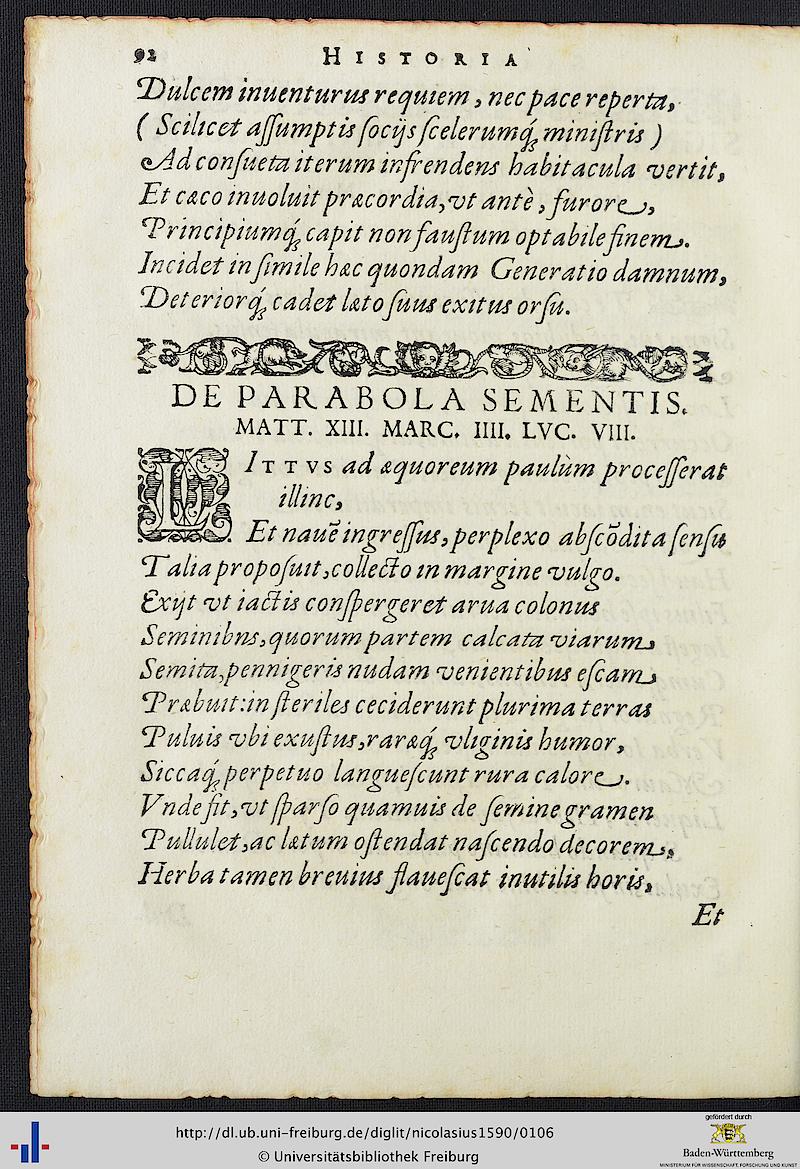 92 HISTORIA
Dulcem inuenturus requiem, nec pace reperta,
( Scilicet aſſumptis ſocijs ſcelerumq́ꝫ miniſtris )
Ad conſueta iterum infrendens habitacula vertit,
Et cæco inuoluit præcordia, vt antè, furore,
Principiumq́ꝫ capit non fauſtum optabile finem.
Incidet in ſimile hæc quondam Generatio damnum,
Deteriorq́ꝫ cadet læto ſuus exitus orſu.
DE PARABOLA SEMENTIS.
MATT. XIII. MARC. IIII. LVC. VIII.
LITTVS ad æquoreum paulùm proceſſerat
illinc,
Et nauē ingreſſus, perplexo abſcōdita ſenſu
Talia propoſuit, collecto in margine vulgo.
Exijt vt iactis conſpergeret arua colonus
Seminibns, quorum partem calcata viarum
Semita, pennigeris nudam venientibus eſcam
Præbuit: in ſteriles ceciderunt plurima terras
Puluis vbi exuſtus, raraq́ꝫ vliginis humor,
Siccaq́ꝫ perpetuo langueſcunt rura calore.
Vnde fit, vt ſparſo quamuis de ſemine gramen
Pullulet, ac lætum oſtendat naſcendo decorem,
Herba tamen breuius flaueſcat inutilis horis,
Et
http://dl.ub.uni-freiburg.de/diglit/nicolasius1590/0106
© Universitätsbibliothek Freiburg
gefördert durch
Baden-Württemberg
MINISTERIUM FÜR WISSENSCHAFT, FORSCHUNG UND KUNST